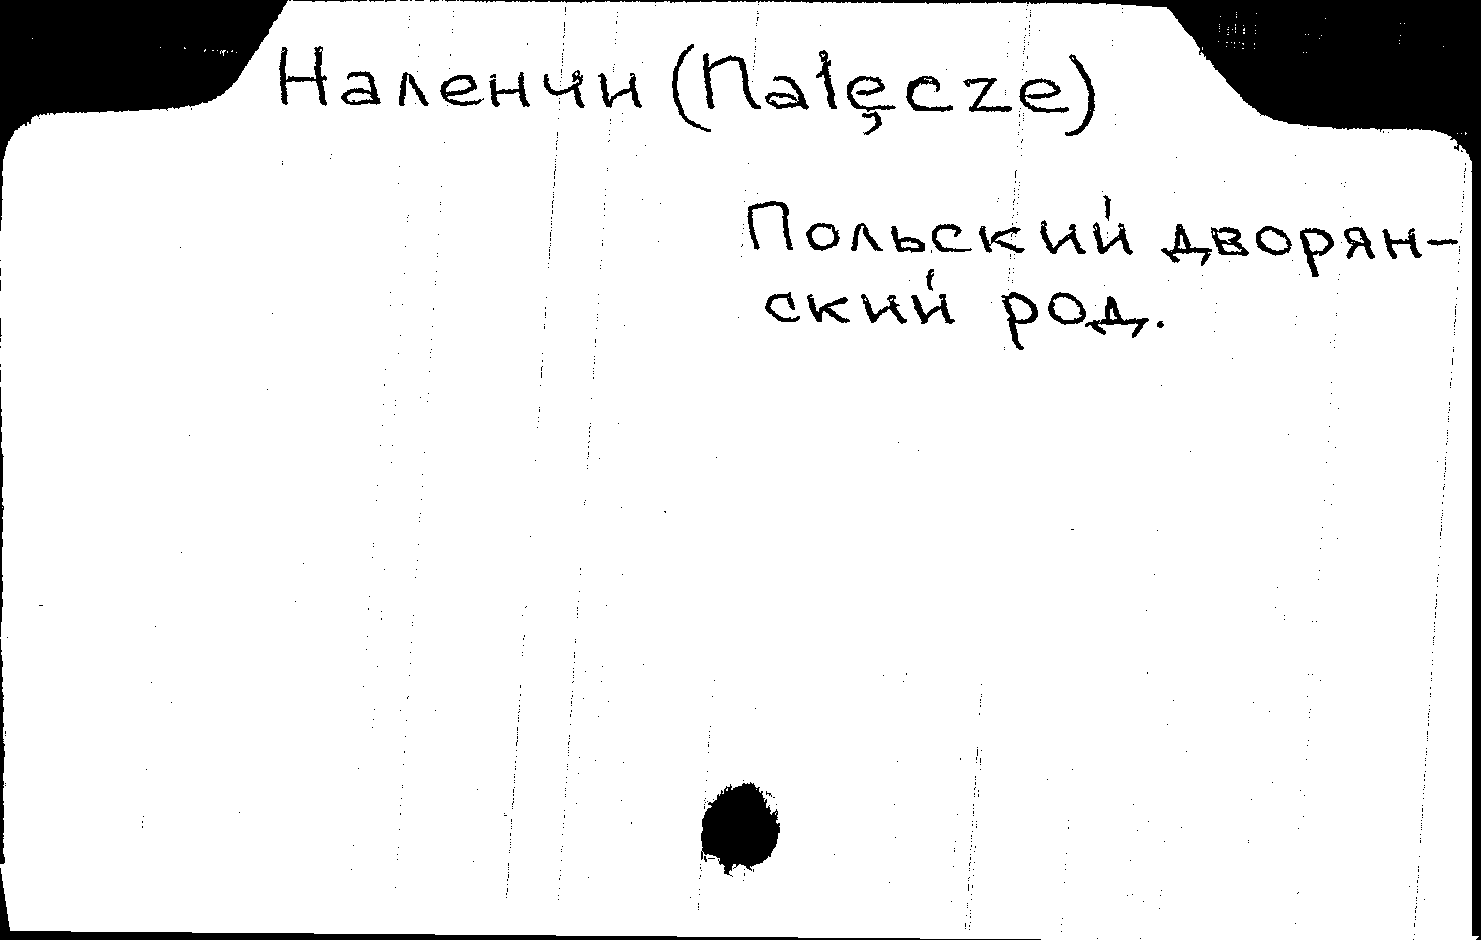 Наленчи (Nałęcze)
Польский дворян-
ский род.